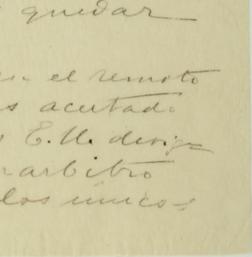 quedar
el remoto
s acertado
E. U. desig-
arbitro
los unicos